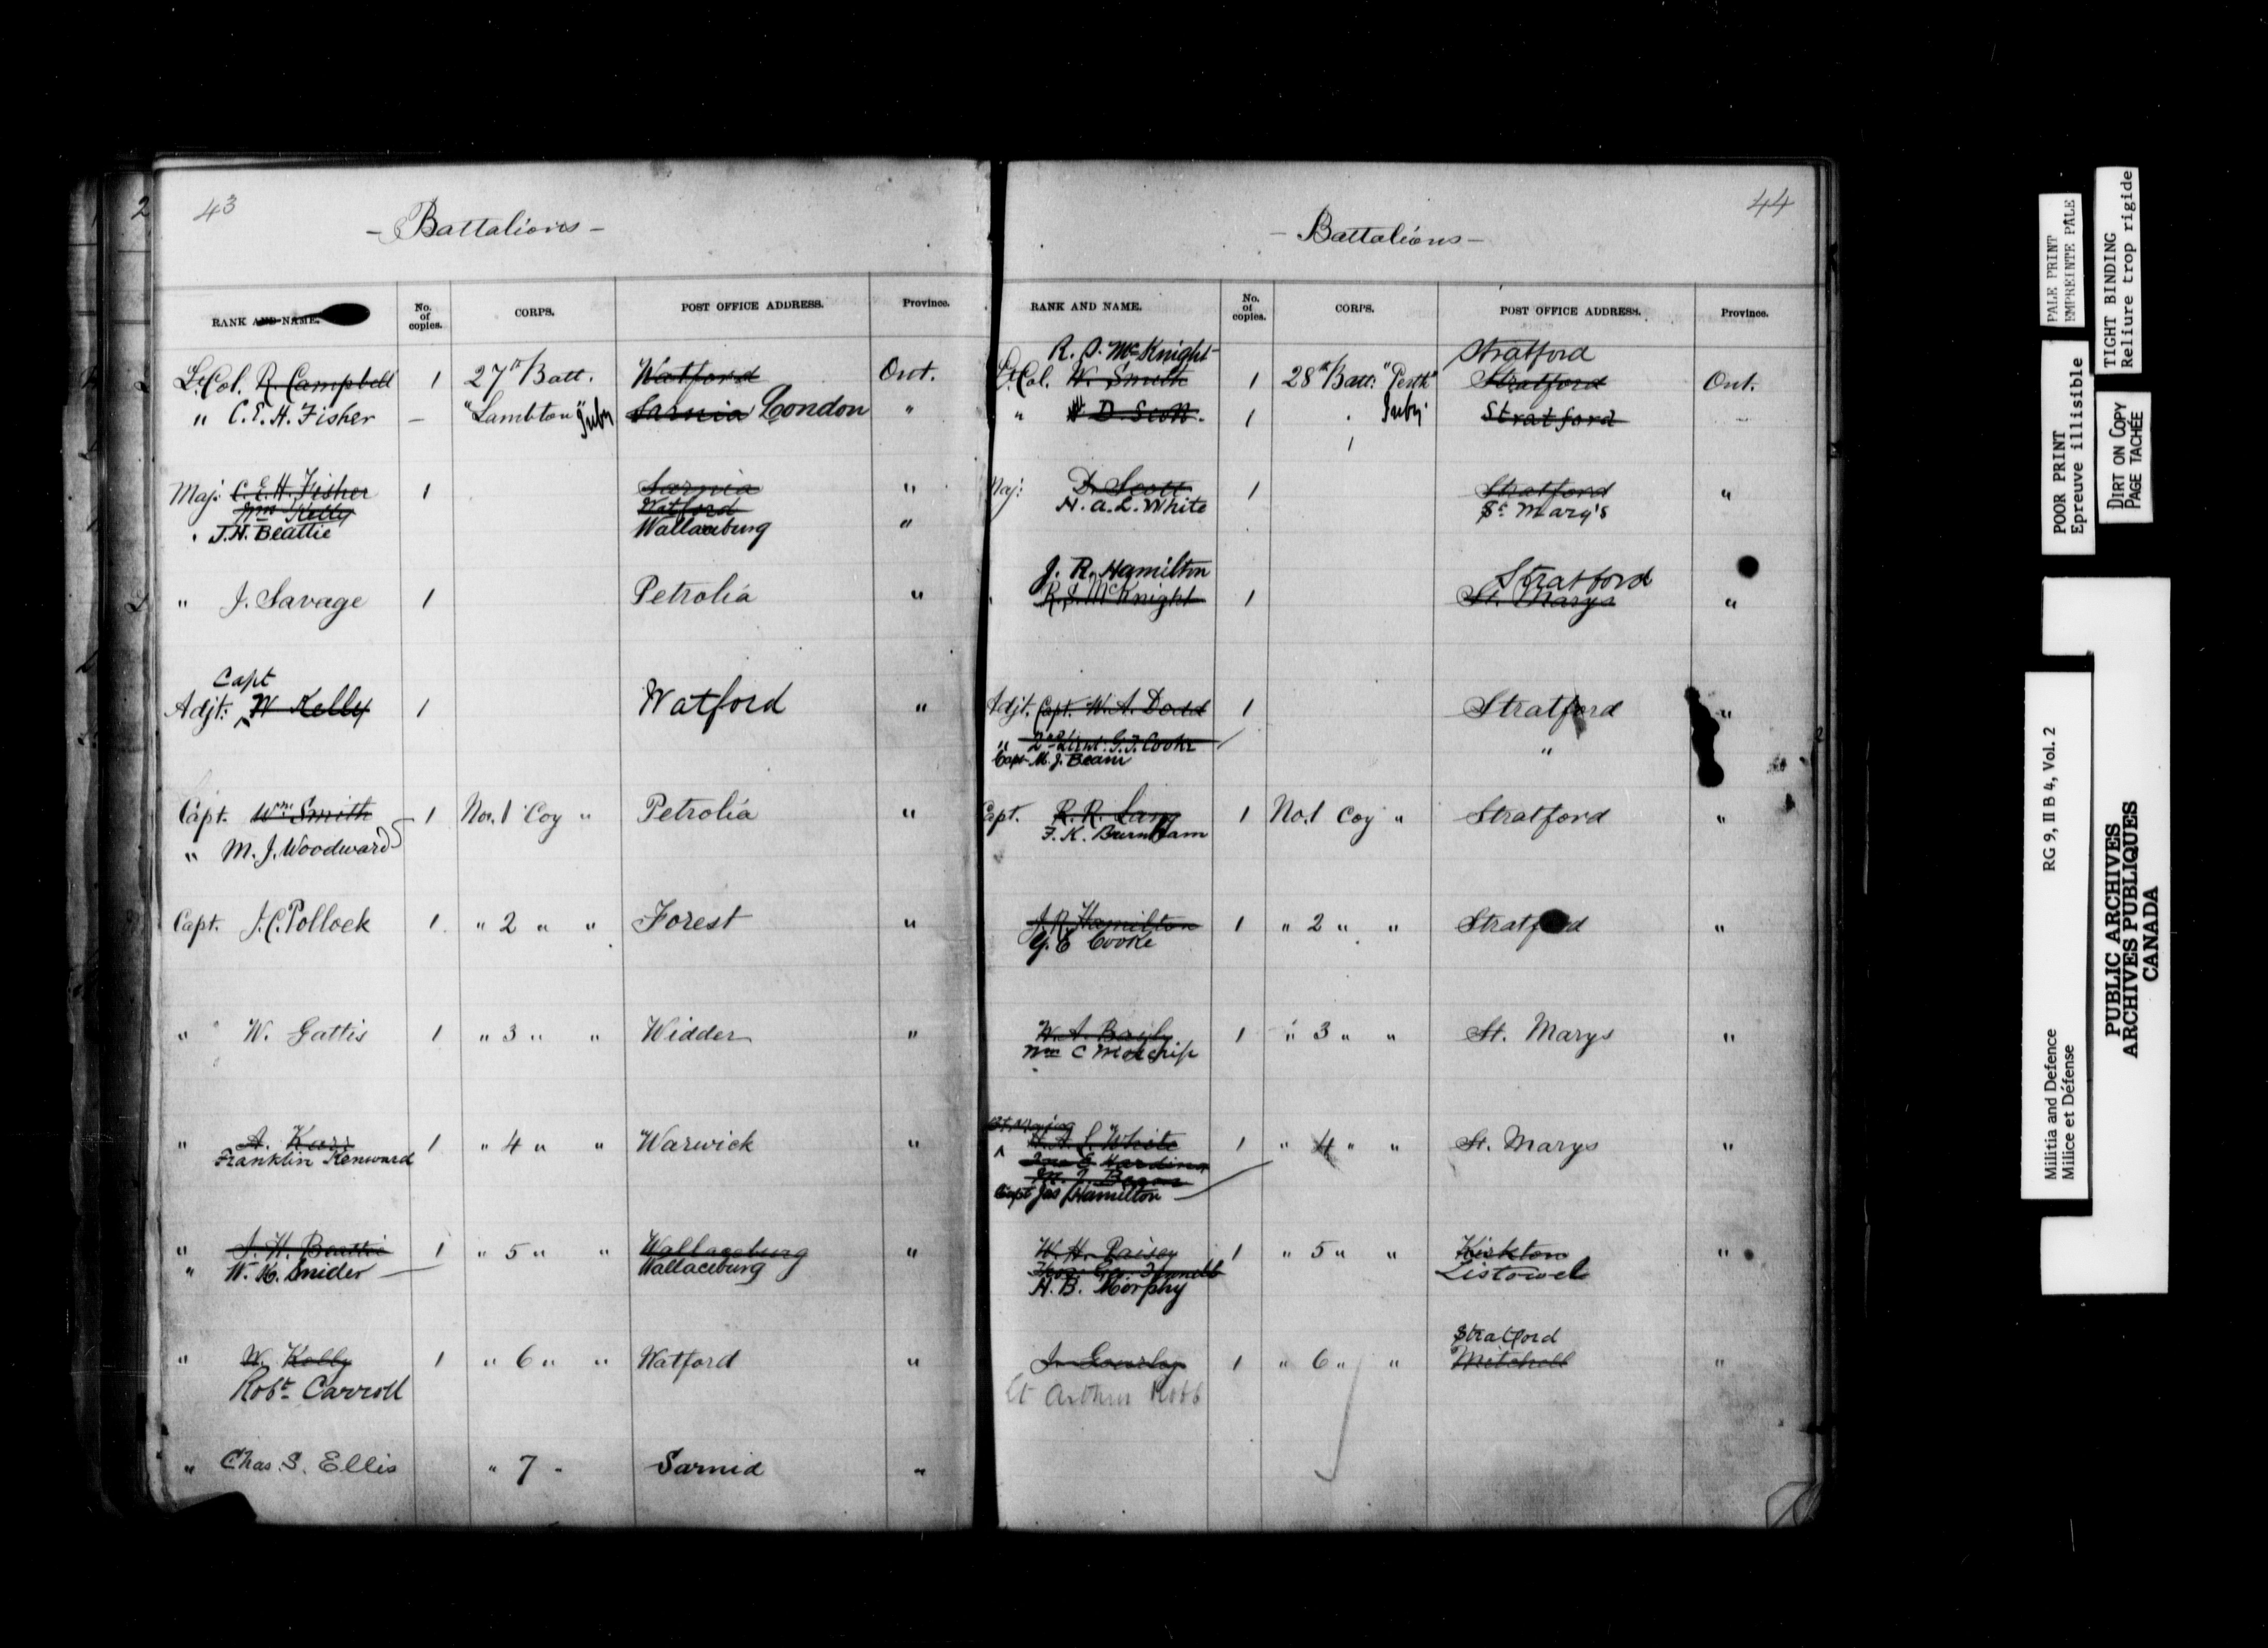 43
- Battalions -
RANK AND NAME. No. of copies. CORPS. POST OFFICE ADDRESS. Province.
Lt. Col. R. Campbell 1 27th Batt. Watford Ont.
" C. E. H. Fisher - "Lambton" Infy Sarnia London "
Maj: C. E. H. Fisher 1 Sarnia "
Wm Kelly Watford
" J. H. Beattie Wallaceburg "
" J. Savage 1 Petrolia "
Capt
Adjt: W Kelly 1 Watford "
Capt. Wm Smith 1 No. 1 Coy " Petrolia "
" M. J. Woodward
Capt. J. C. Pollock 1 " 2 " " Forest "
" W. Gattis 1 " 3 " " Widder "
" A. 1 " 4 " " Warwick "
Franklin Kenward
" J. H. Beattie 1 " 5 " " Wallaceburg "
" W. K. Snider Wallaceburg
" W. Kelly 1 " 6 " " Watford "
Robt. Carroll
" Chas. S. Ellis " 7 " Sarnia "
44
- Battalions -
RANK AND NAME. No. of copies. CORPS. POST OFFICE ADDRESS. Province.
R. S. McKnight Stratford
Lt. Col. W. Smith 1 28th Batt: "Perth" Stratford Ont.
" D Scott. 1 Infy. Stratford
Maj: D. Scott 1 Stratford "
H. A. L. White St. Mary's
J. R. Hamilton Stratford
R. S. McKnight 1 St. Marys "
Adjt. Capt. W. A. Dodd 1 Stratford "
" 2nd Lieut. G. J. Cooke "
Capt M. J. Beam
Capt. R. R. Lang 1 No. 1 Coy " Stratford "
F. K. Burnham
J. R. Hamilton 1 " 2 " " Stratford "
Cooke
W. A. 1 " 3 " " St. Marys "
Wm C
Bt. Major
H. A. L White 1 " 4 " " St. Marys "
Jno E Harding
M. J. Beam
Capt Jas Hamilton
W. H. Paisey 1 " 5 " " Kirkton "
Listowel
H. B. Morphy
Stratford
J. Gourlay 1 " 6 " " Mitchell "
Lt Arthur Robb
PALE PRINT
EMPREINTE PALE
TIGHT BINDING
Reliure trop rigide
POOR PRINT
Epreuve illisible
DIRT ON COPY
PAGE TACHÉE
RG 9, II B 4, Vol. 2
Militia and Defence
Milice et Défense
PUBLIC ARCHIVES
ARCHIVES PUBLIQUES
CANADA